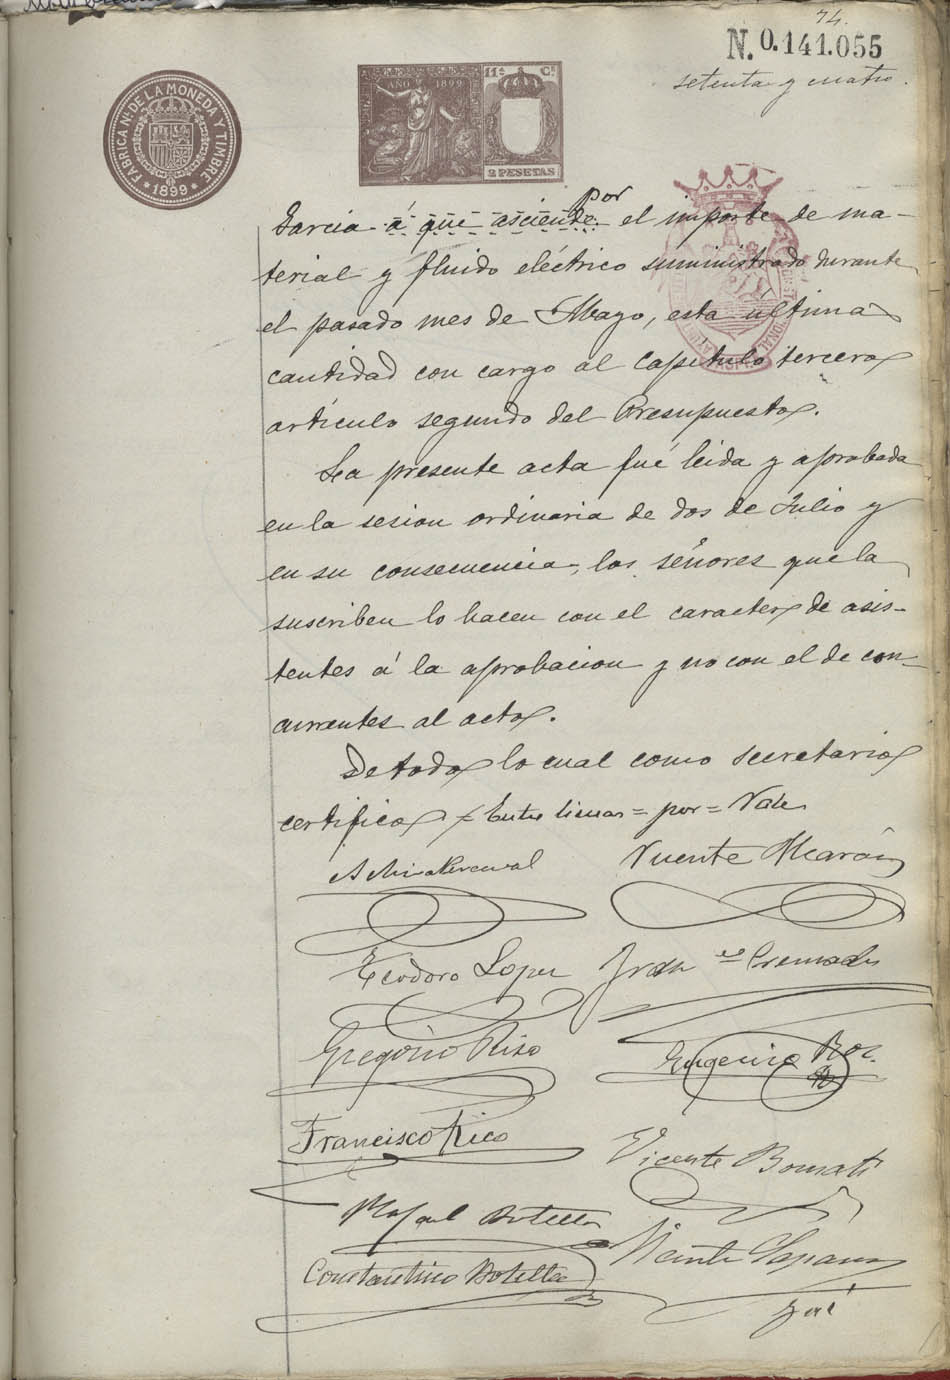 74.
N. 0.141.055
setenta y cuatro.
FÁBRICA Nal. DE LA MONEDA Y TIMBRE
1899
AÑO 1899
11ª Cl.
2 PESETAS
por
Garcia á que asciende el importe de ma-
terial y fluido eléctrico suministrado durante
el pasado mes de Mayo, esta última
cantidad con cargo al Capitulo tercero
artículo segundo del Presupuesto.
La presente acta fué leida y aprobada
en la sesion ordinaria de dos de Julio y
en su consecuencia, los señores que la
suscriben lo hacen con el caracter de asis-
tentes á la aprobacion y no con el de con-
currentes al acto.
De todo lo cual como secretario
certifico = Entre lineas = por = Vale
Vicente Alcaráz
Teodoro Lopez Franco Cremades
Gregorio Rizo Eugenio
Francisco Rico Vicente Bonmati
Rafael Botella
Vicente
Constantino Botella
José